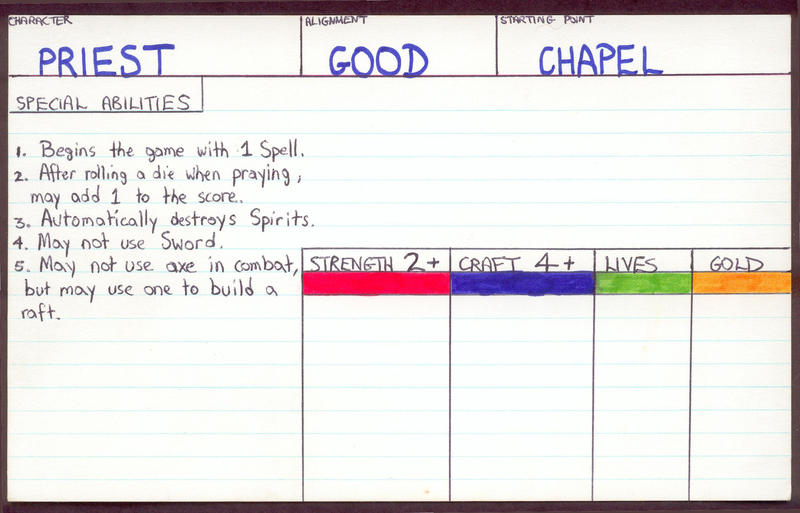 CHARACTER
PRIEST
ALIGNMENT
GOOD
STARTING POINT
CHAPEL
SPECIAL ABILITIES
1. Begins the game with 1 Spell.
2. After rolling a die when praying,
may add 1 to the score.
3. Automatically destroys Spirits.
4. May not use Sword.
5. May not use axe in combat,
but may use one to build a
raft.
STRENGTH 2+
CRAFT 4+
LIVES
GOLD